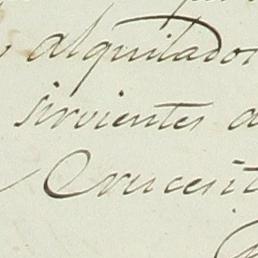 alquilador
sirvientes a
Crucesit